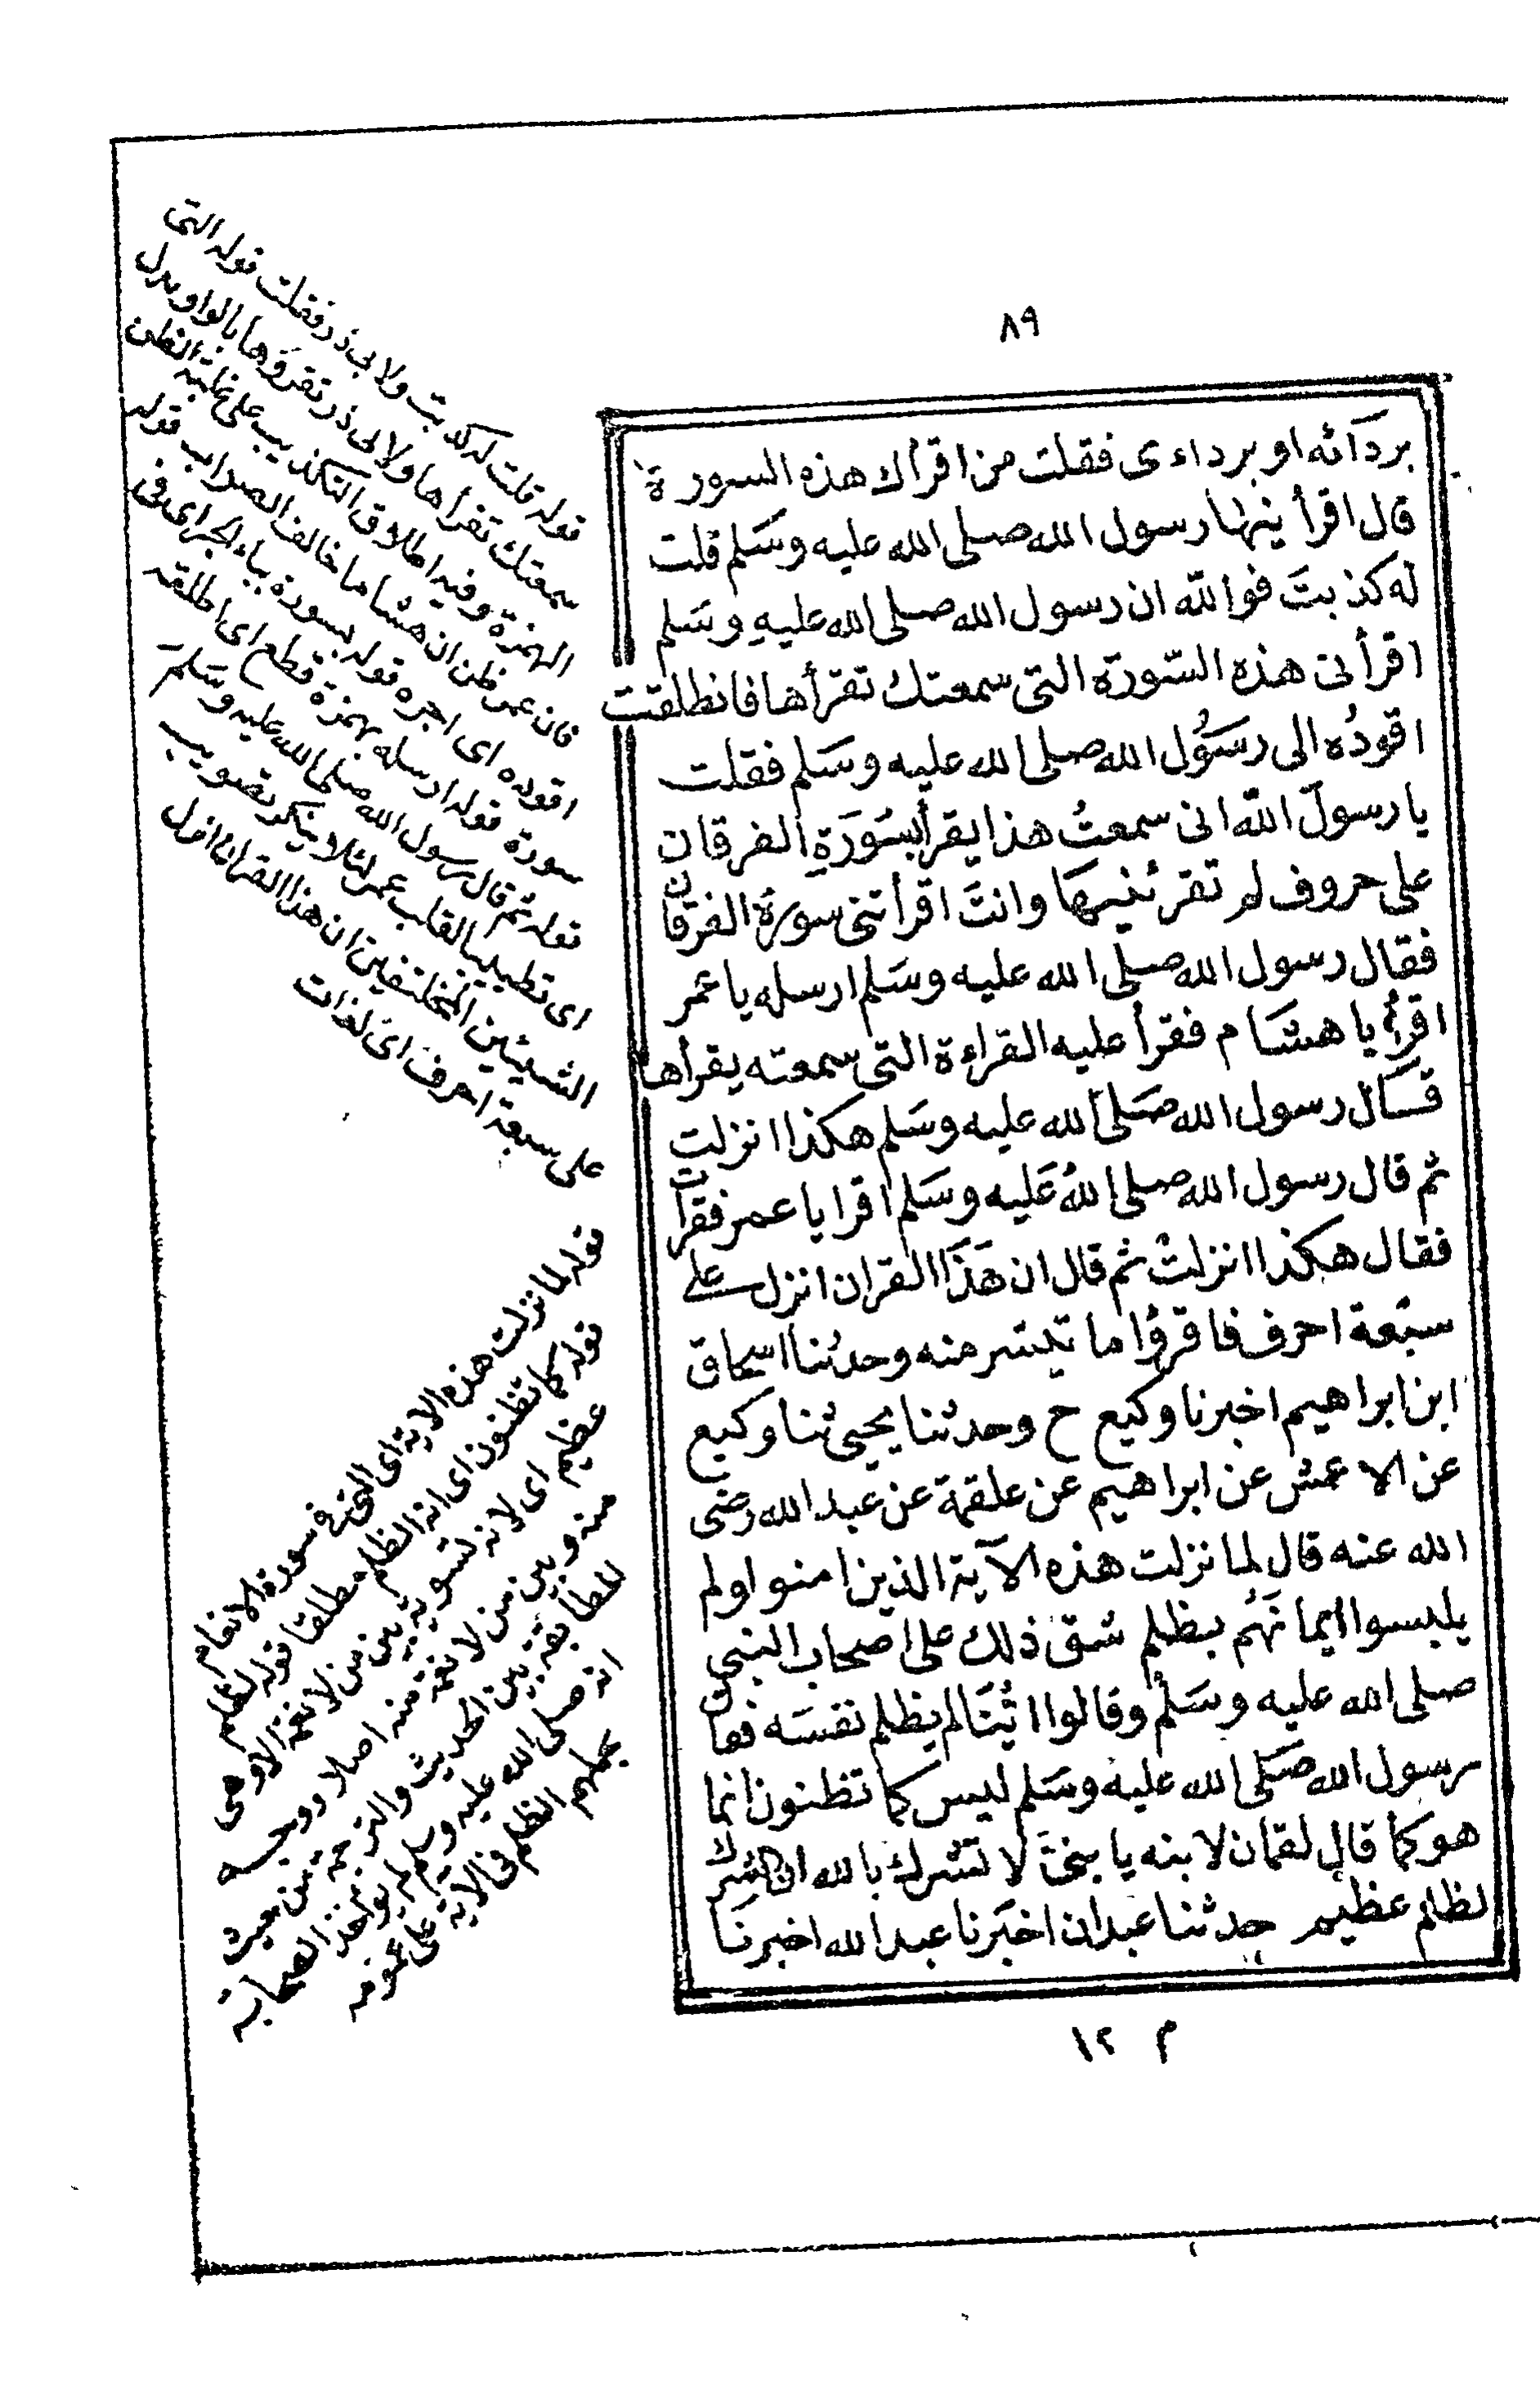 ٨٩
بردآئه او برداءى فقلت من اقرأك هذه السورة
قال اقرأنيها رسول الله صلى الله عليه وسلم قلت
له كذبت فوالله ان رسول الله صلى الله عليه وسلم
اقرأنى هذه السورة التى سمعتك تقرأها فانطلقت
اقوده الى رسول الله صلى الله عليه وسلم فقلت
يا رسول الله انى سمعت هذا يقرأ بسورة الفرقان
على حروف لم تقرئنيها وانت اقرأتنى سورة الفرقان
فقال رسول الله صلى الله عليه وسلم ارسله يا عمر
اقرأ يا هشام فقرأ عليه القراءة التى سمعته يقرأها
قال رسول الله صلى الله عليه وسلم هكذا انزلت
ثم قال رسول الله صلى الله عليه وسلم اقرا يا عمر فقرأت
فقال هكذا انزلت ثم قال ان هذا القران انزل على
سبعة احرف فاقرؤا ما تيسر منه وحدثنا اسحاق
ابن ابراهيم اخبرنا وكيع ح وحدثنا يحيى ثنا وكيع
عن الاعمش عن ابراهيم عن علقمة عن عبد الله رضى
الله عنه قال لما نزلت هذه الآية الذين امنوا ولم
يلبسوا ايمانهم بظلم شق ذلك على اصحاب النبى
صلى الله عليه وسلم وقالوا اينا لم يظلم نفسه فقال
رسول الله صلى الله عليه وسلم ليس كما تظنون انما
هو كما قال لقمان لابنه يا بنى لا تشرك بالله ان الشرك
لظلم عظيم حدثنا عبدان اخبرنا عبد الله اخبرنا
م ١٢
قوله قلت له كذبت ولابى ذر فقلت قوله التى
سمعتك تقرأها ولابى ذر تقرؤها بالواو بدل
الهمزة وفيه اطلاق التكذيب على غلبة الظن
فان عمر ظن ان هشاما خالف الصواب قوله
اقوده اى اجره قوله بسورة بباء الجر اى فى
سورة قوله ارسله بهمزة قطع اى اطلقه
قوله ثم قال رسول الله صلى الله عليه وسلم
اى تطييبا لقلب عمر لئلا ينكر تصويب
الشيئين المختلفين ان هذا القران انزل
على سبعة احرف اى لغات
قوله لما نزلت هذه الاية اى التى فى سورة الانعام
قوله كما تظنون اى انه الظلم مطلقا قوله لظلم
عظيم اى لانه تسوية بين من لا نعمة الا وهى
منه وبين من لا نعمة منه اصلا ووجه
المطابقة بين الحديث والترجمة من حيث
انه صلى الله عليه وسلم لم يؤاخذ الصحابة
بحملهم الظلم فى الاية على عمومه